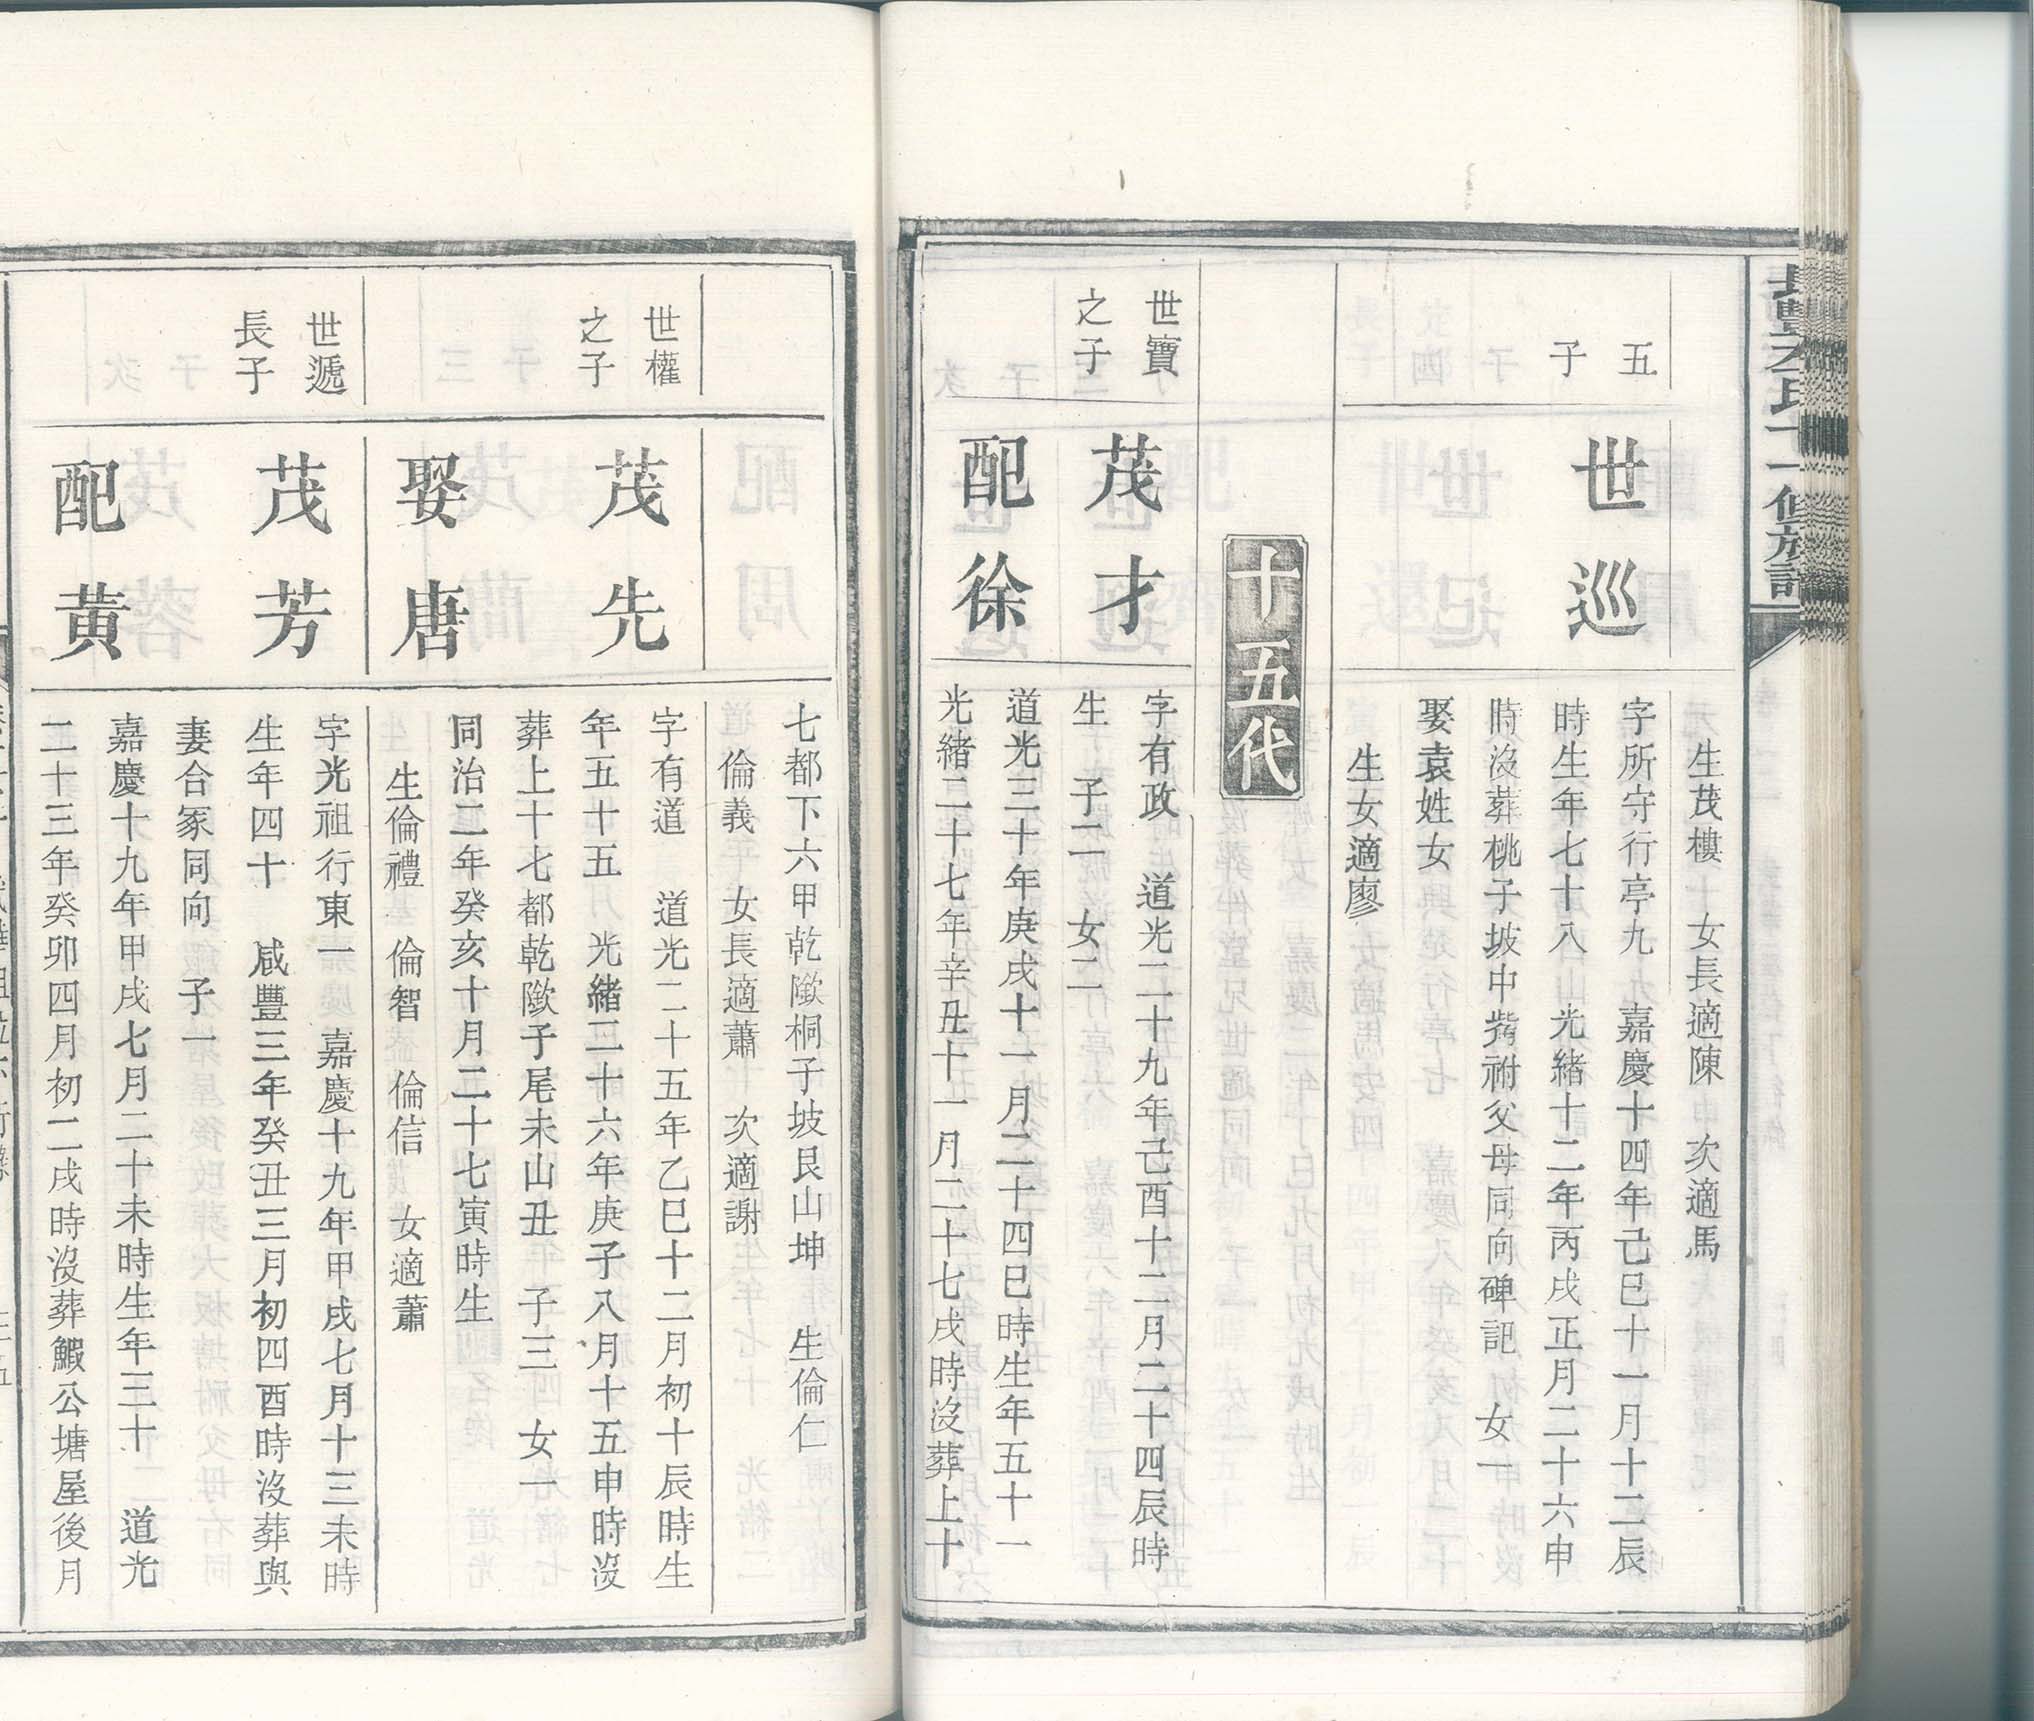 長豐李氏十一修族譜
生茂樓 女長適陳 次適馬
五
子
世巡
字所守行亭九 嘉慶十四年己巳十一月十二辰
時生年七十八 光緒十二年丙戌正月二十六申
時沒葬桃子坡中嘴祔父母同向碑記 女一
娶袁姓女
生女適廖
十五代
世寶
之子
茂才
字有政 道光二十九年己酉十二月二十四辰時
生 子二 女二
配徐
道光三十年庚戌十一月二十四巳時生年五十一
光緒二十七年辛丑十一月二十七戌時沒葬上十
七都下六甲乾隞桐子坡艮山坤 生倫仁
倫義 女長適蕭 次適謝
世權
之子
茂先
字有道 道光二十五年乙巳十二月初十辰時生
年五十五 光緒二十六年庚子八月十五申時沒
葬上十七都乾隞子尾未山丑 子三 女一
娶唐
同治二年癸亥十月二十七寅時生
生倫禮 倫智 倫信 女適蕭
世遞
長子
茂芳
字光祖行東一 嘉慶十九年甲戌七月十三未時
生年四十 咸豐三年癸丑三月初四酉時沒葬與
妻合冢同向 子一
配黃
嘉慶十九年甲戌七月二十未時生年三十 道光
二十三年癸卯四月初二戌時沒葬鰕公塘屋後月